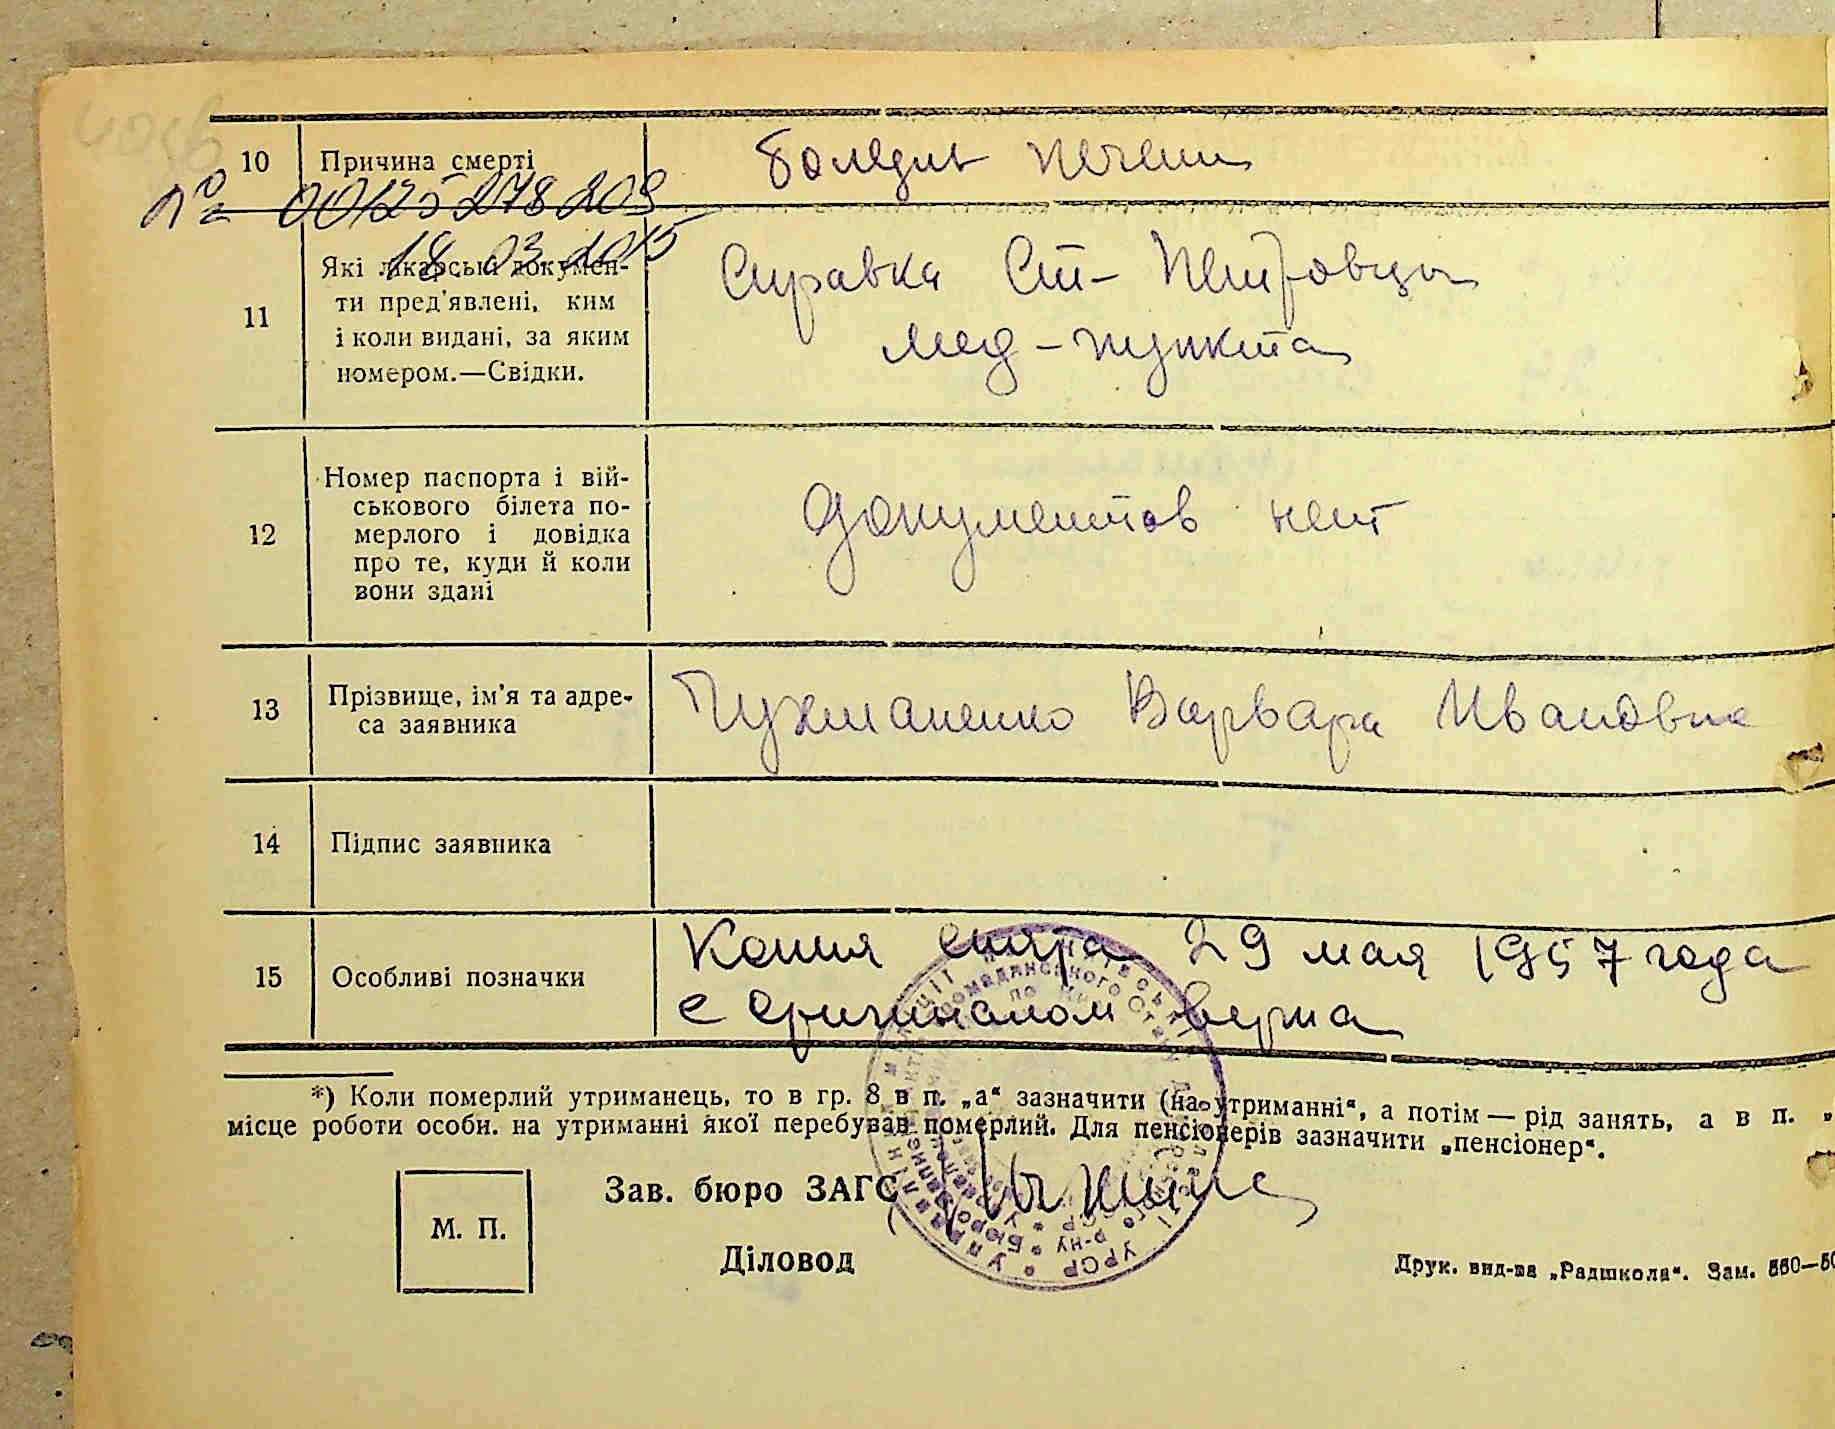 10 Причина смерті болезнь печени
№ 00125278203
18.03.2015
11 Які лікарські докумен-
ти пред'явлені, ким
і коли видані, за яким
номером.—Свідки.
Справка Ст-Петровцы
мед-пункта
12 Номер паспорта і вій-
ськового білета по-
мерлого і довідка
про те, куди й коли
вони здані
документов нет
13 Прізвище, ім'я та адре-
са заявника
Пухманенко Варвара Ивановна
14 Підпис заявника
15 Особливі позначки
Копия снята 29 мая 1957 года
с оригиналом верна
*) Коли померлий утриманець, то в гр. 8 в п. „а“ зазначити (на утриманні“, а потім — рід занять, а в п. „
місце роботи особи. на утриманні якої перебував померлий. Для пенсіонерів зазначити „пенсіонер“.
М. П.
Зав. бюро ЗАГС
Діловод
Друк. вид-ва „Радшкола“. Зам. 550—50